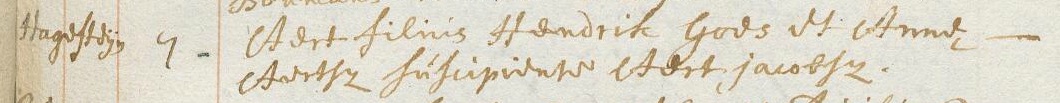 Hagesteijn 7 - Aert filius Hendrik Goes et Annę —
Aertsz suscipiente Aert jacobsz.